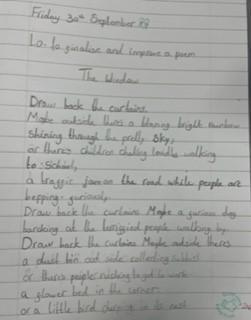 Friday 30th September
Lo. to finalise and improve a poem
The Window
Draw back the curtains.
Maybe outside there's a blazing bright rainbow
shining through the pretty sky,
or there's children loudly walking
to school,
a traffic jam on the road while people are
bepping furiously,
Draw back the curtains Maybe a furious dog
barcking at the terrified people walking by,
Draw back the curtains Maybe outside there's
a dust bin out side collecting rubbish
or there's people rushing to get to work
a flower bed in the corner
or a little bird in its nest